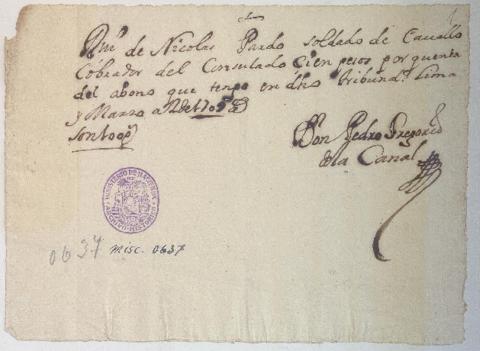 Rvi de Nicolas Pardo soldado de Cavallo
Cobrador del Consulado Cien pesos por quenta
del abono que tengo en dho tribunal Lima
y Marzo a
Son 100 p
Don Pedro Gregorio
de la Canal
MINISTERIO DE HACIENDA
ARCHIVO HISTORICO
0637 misc. 0637